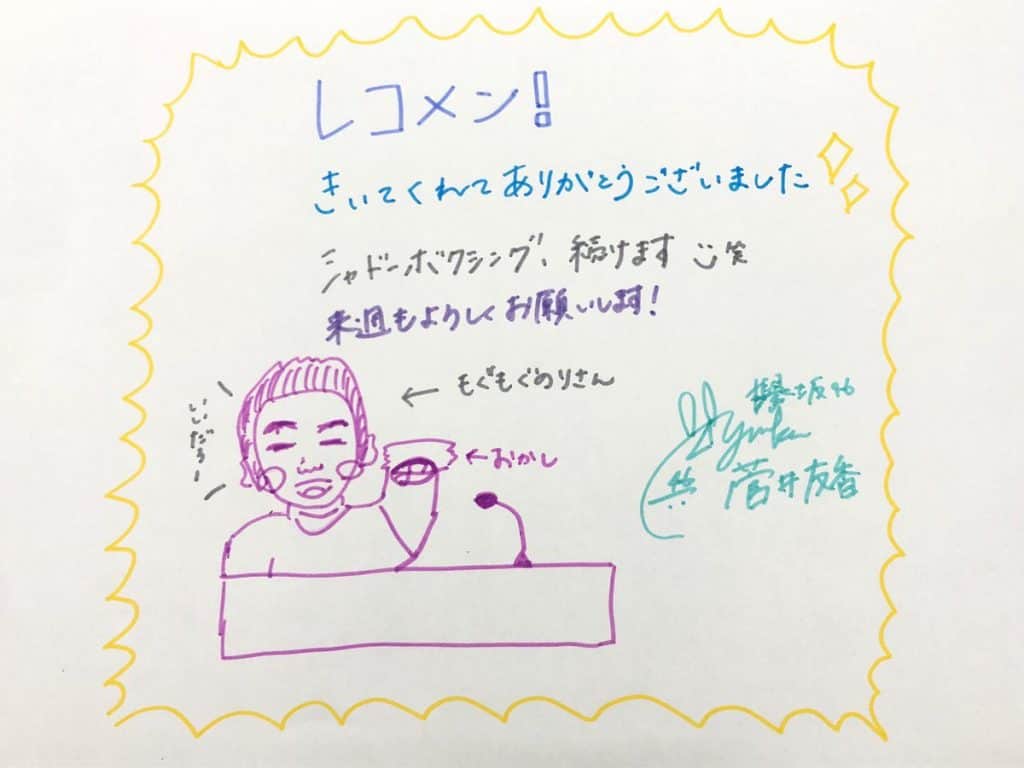 レコメン!
きいてくれてありがとうございました
シャドーボクシング、続けます 笑
来週もよろしくお願いします!
← もぐもぐのりさん
いいだろー
←おかし
欅坂46
Yuuka
菅井友香